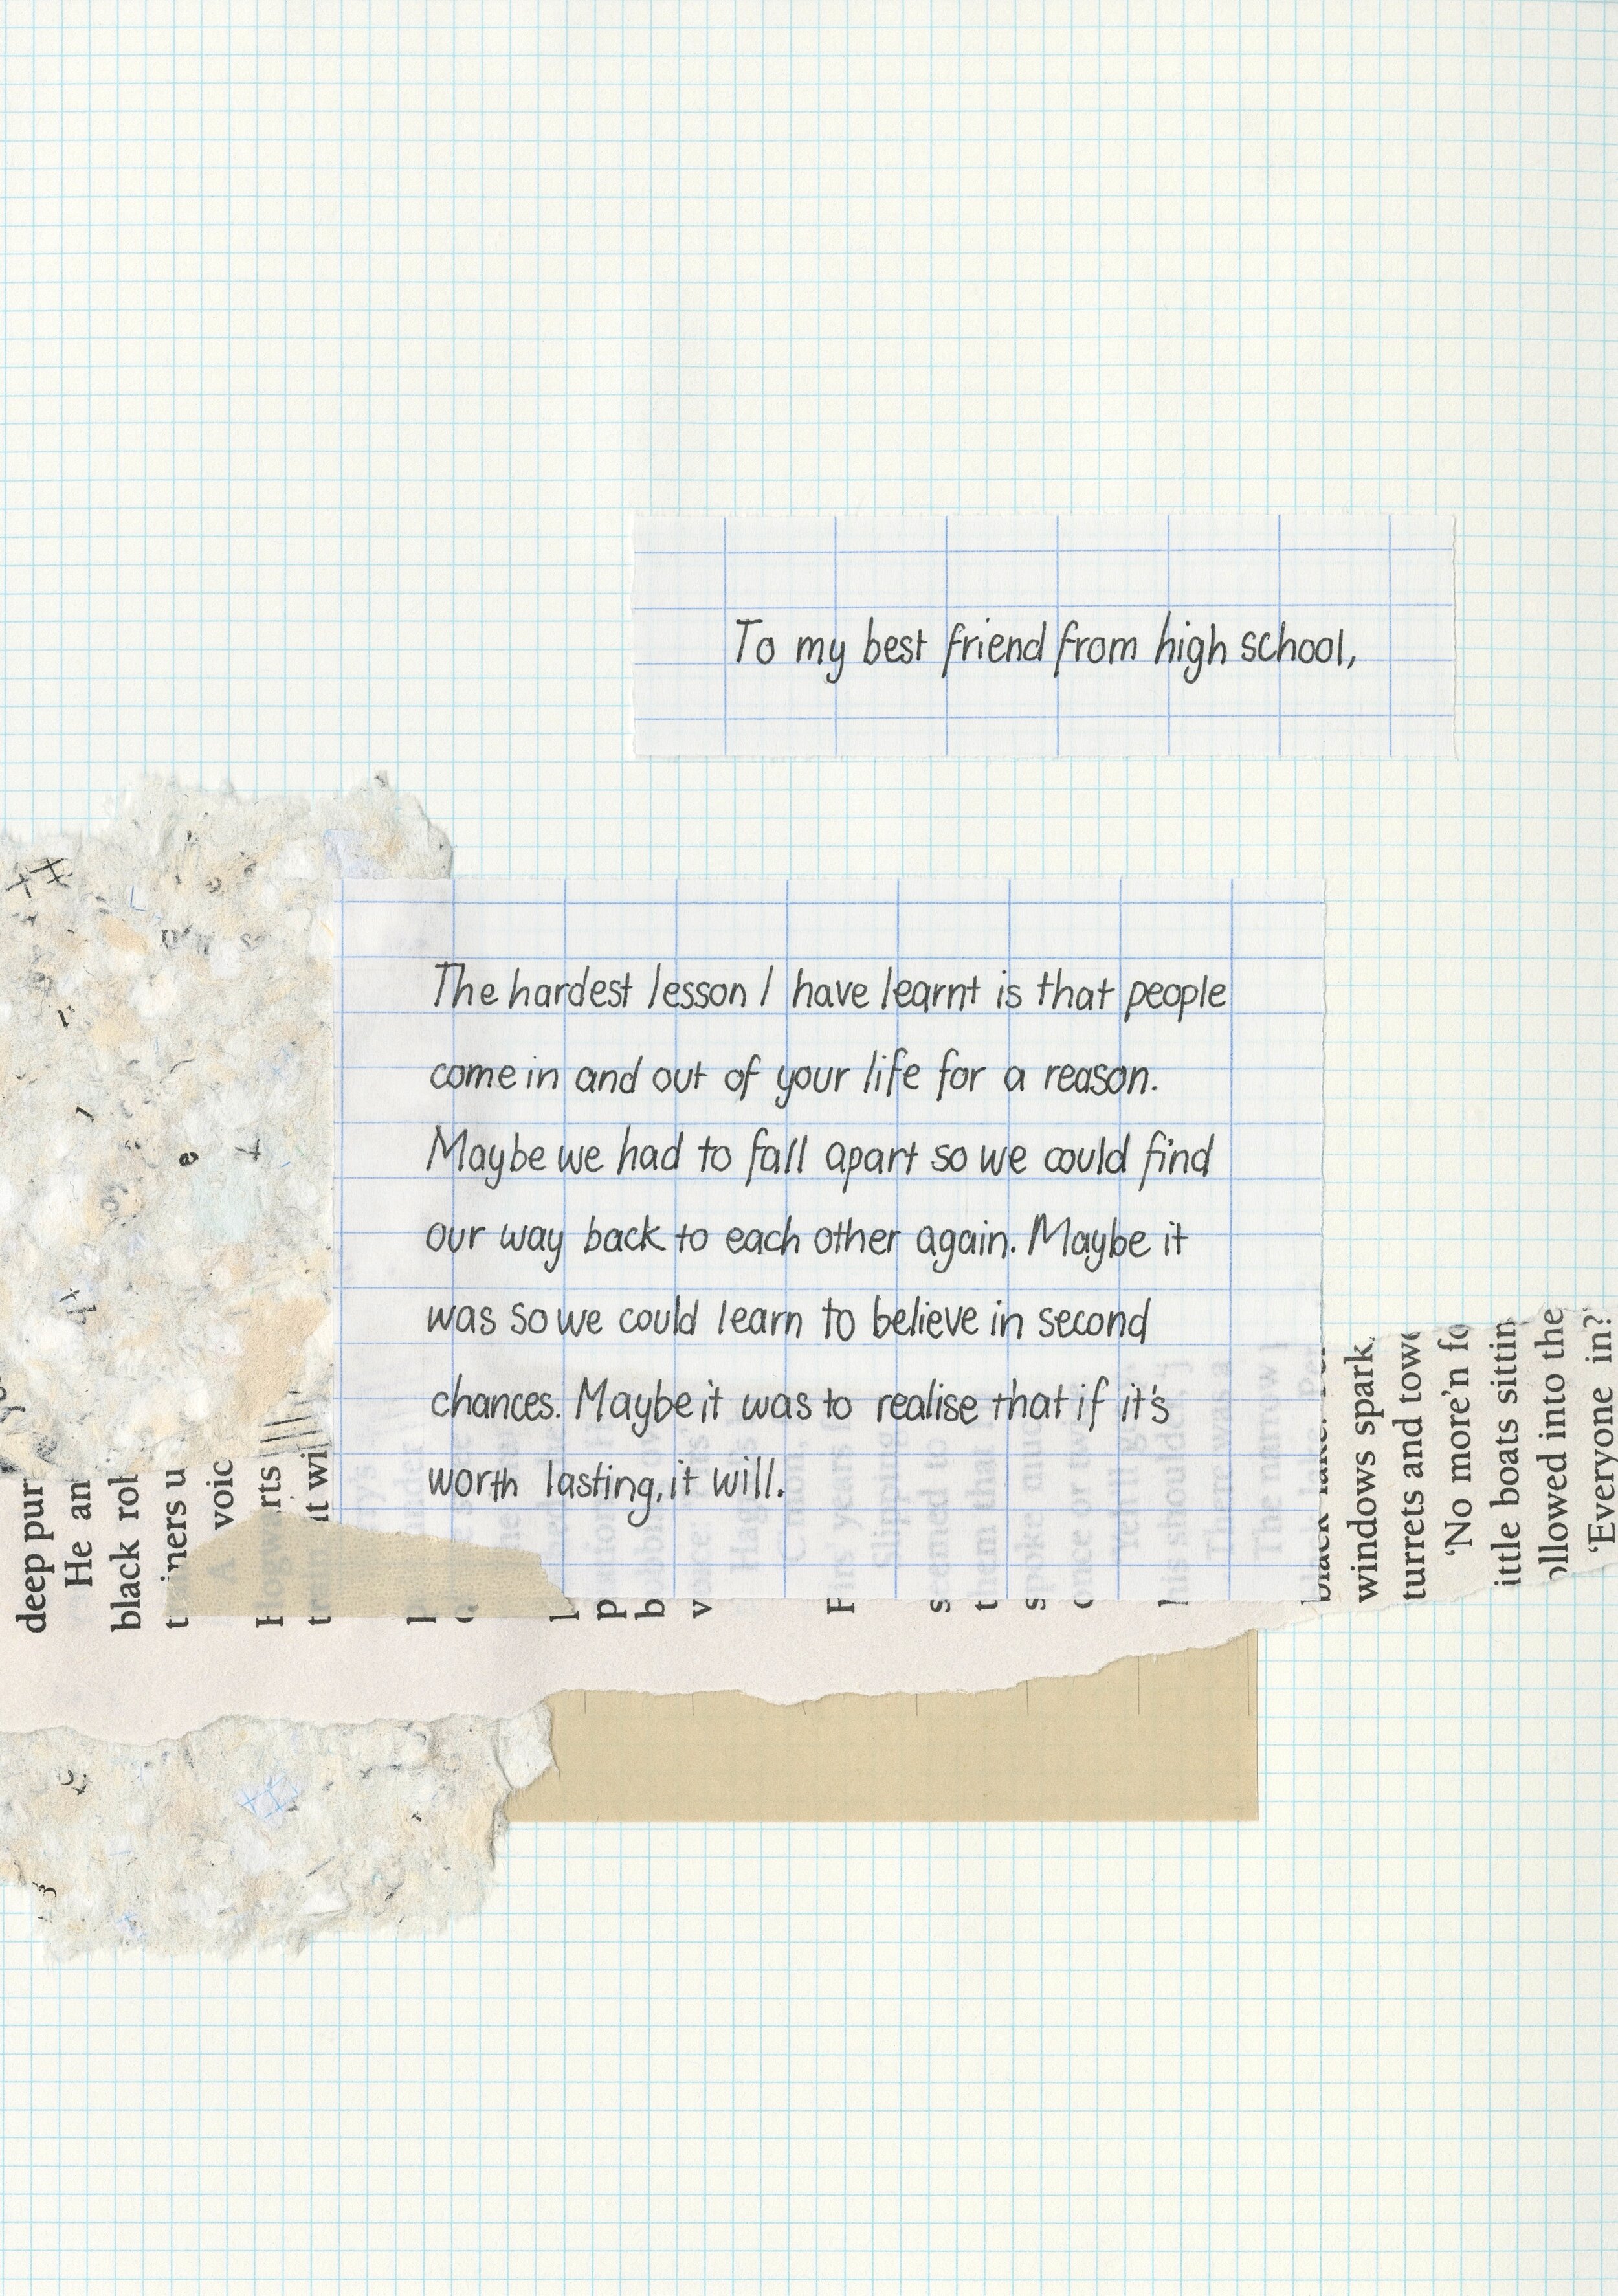 To my best friend from high school,
The hardest lesson I have learnt is that people
come in and out of your life for a reason.
Maybe we had to fall apart so we could find
our way back to each other again. Maybe it
was so we could learn to believe in second
chances. Maybe it was to realise that if it's
worth lasting, it will.
deep pur
He an
black
voic
windows spark
turrets and tow
'No more'n
ittle boats sittin
ollowed into the
'Everyone in?